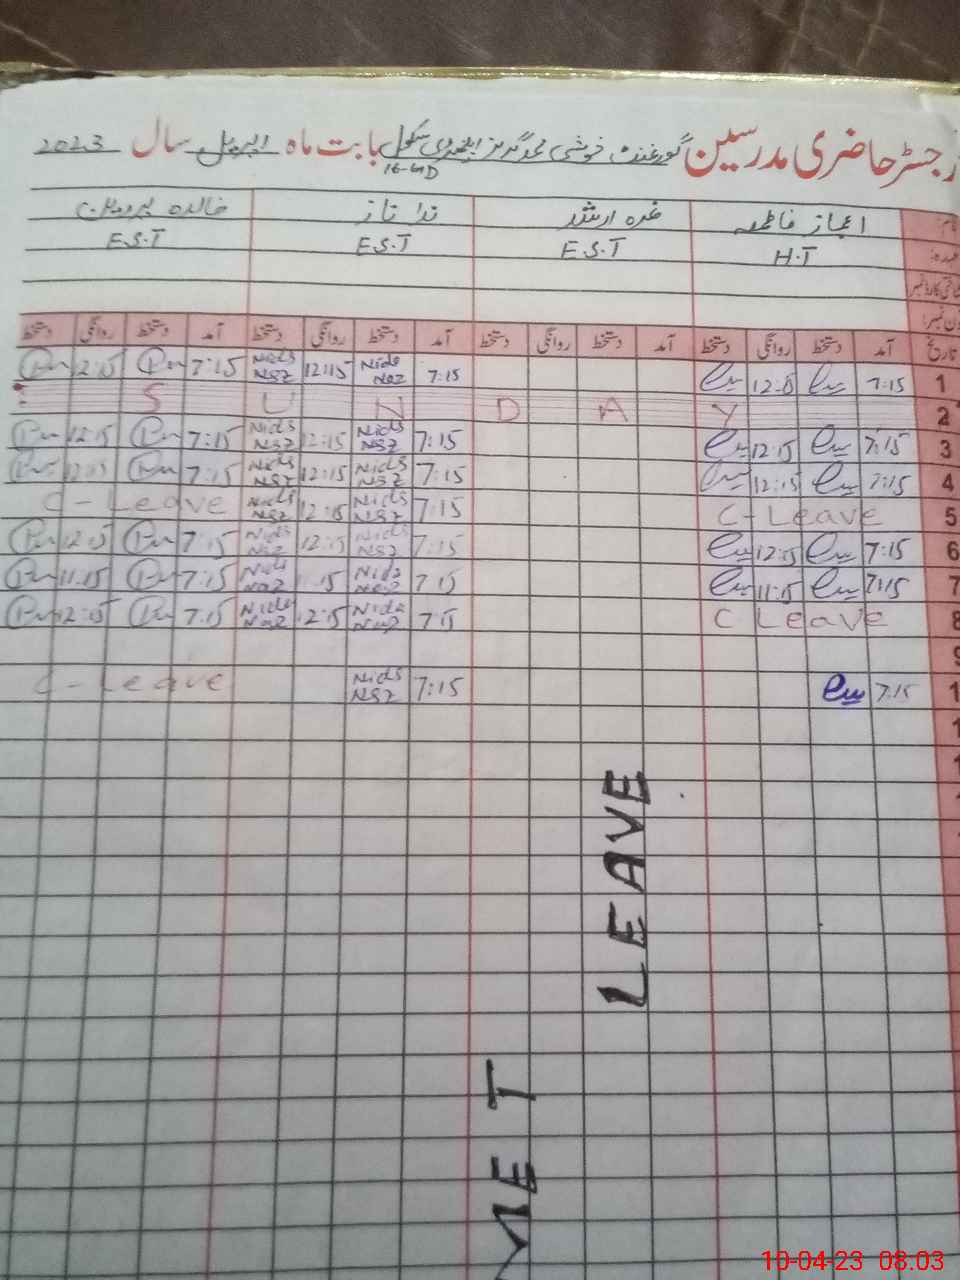 رجسٹر حاضری مدرسین گورنمنٹ خوشی محمد گرلز ایلیمنٹری سکول بابت ماہ اپریل سال 2023
16-GD
نام: اعجاز فاطمہ ارشد ندا ناز خالدہ پروین
عہدہ: H.T E.S.T E.S.T E.S.T
شناختی کارڈ نمبر
فون نمبر:
تاریخ آمد دستخط روانگی دستخط آمد دستخط روانگی دستخط آمد دستخط روانگی دستخط آمد دستخط روانگی دستخط
1 7:15 12:15 7:15 Nida Naz 12:15 Nida Naz 7:15 12:15
2 S U N D A Y
3 7:15 12:15 7:15 Nida Naz 12:15 Nida Naz 7:15 12:15
4 7:15 12:15 7:15 Nida Naz 12:15 Nida Naz 7:15 12:15
5 C-Leave 7:15 Nida Naz 12:15 Nida Naz C-Leave
6 7:15 12:15 7:15 Nida Naz 12:15 Nida Naz 7:15 12:15
7 7:15 11:15 7:15 Nida Naz 11:15 Nida Naz 7:15 11:15
8 C Leave 7:15 Nida Naz 12:15 Nida Naz 7:15 12:15
9
1 7:15 7:15 Nida Naz C-Leave
LEAVE
10-04-23 08.03